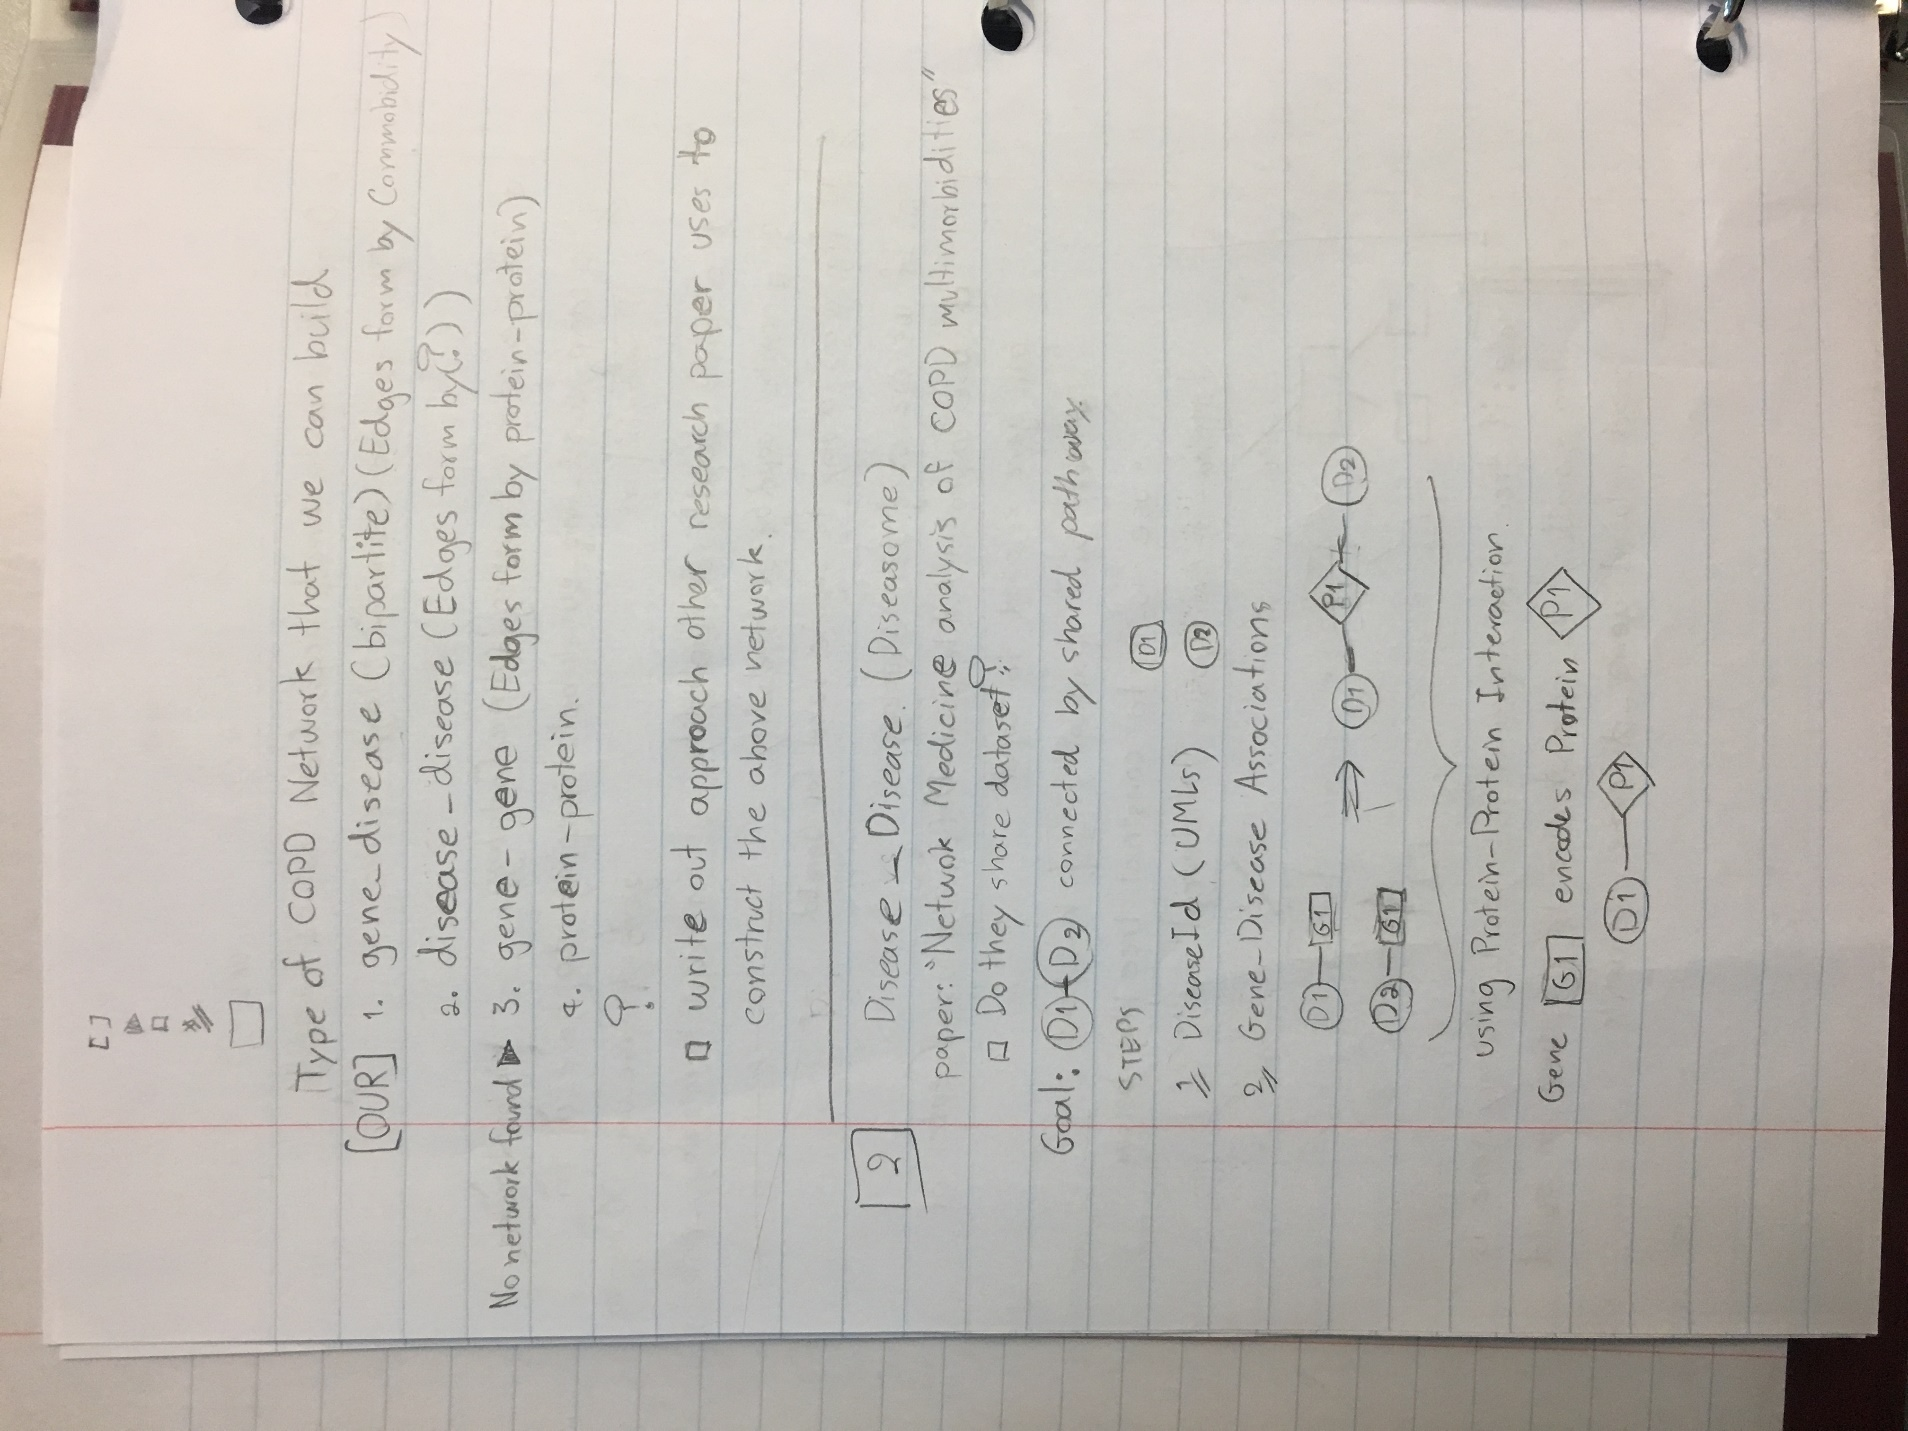 [ ]
Type of COPD Network that we can build
[OUR] 1. gene_disease (bipartite) (Edges form by Commobidity)
2. disease_disease (Edges form by(?))
No network found ▶ 3. gene-gene (Edges form by protein-protein)
4. protein-protein.
?
□ write out approach other research paper uses to
construct the above network.
2
Disease_Disease. (Diseasome)
paper: "Network Medicine analysis of COPD multimorbidities"
□ Do they share dataset?
Goal: D1 D2 connected by shared pathway.
STEPS
D1
1 DiseaseId (UMLs) D2
2 Gene-Disease Associations
D1-G1 ⇒ D1-P1-D2
D2-G1
using Protein-Protein Interaction.
Gene G1 encodes Protein P1
D1-P1